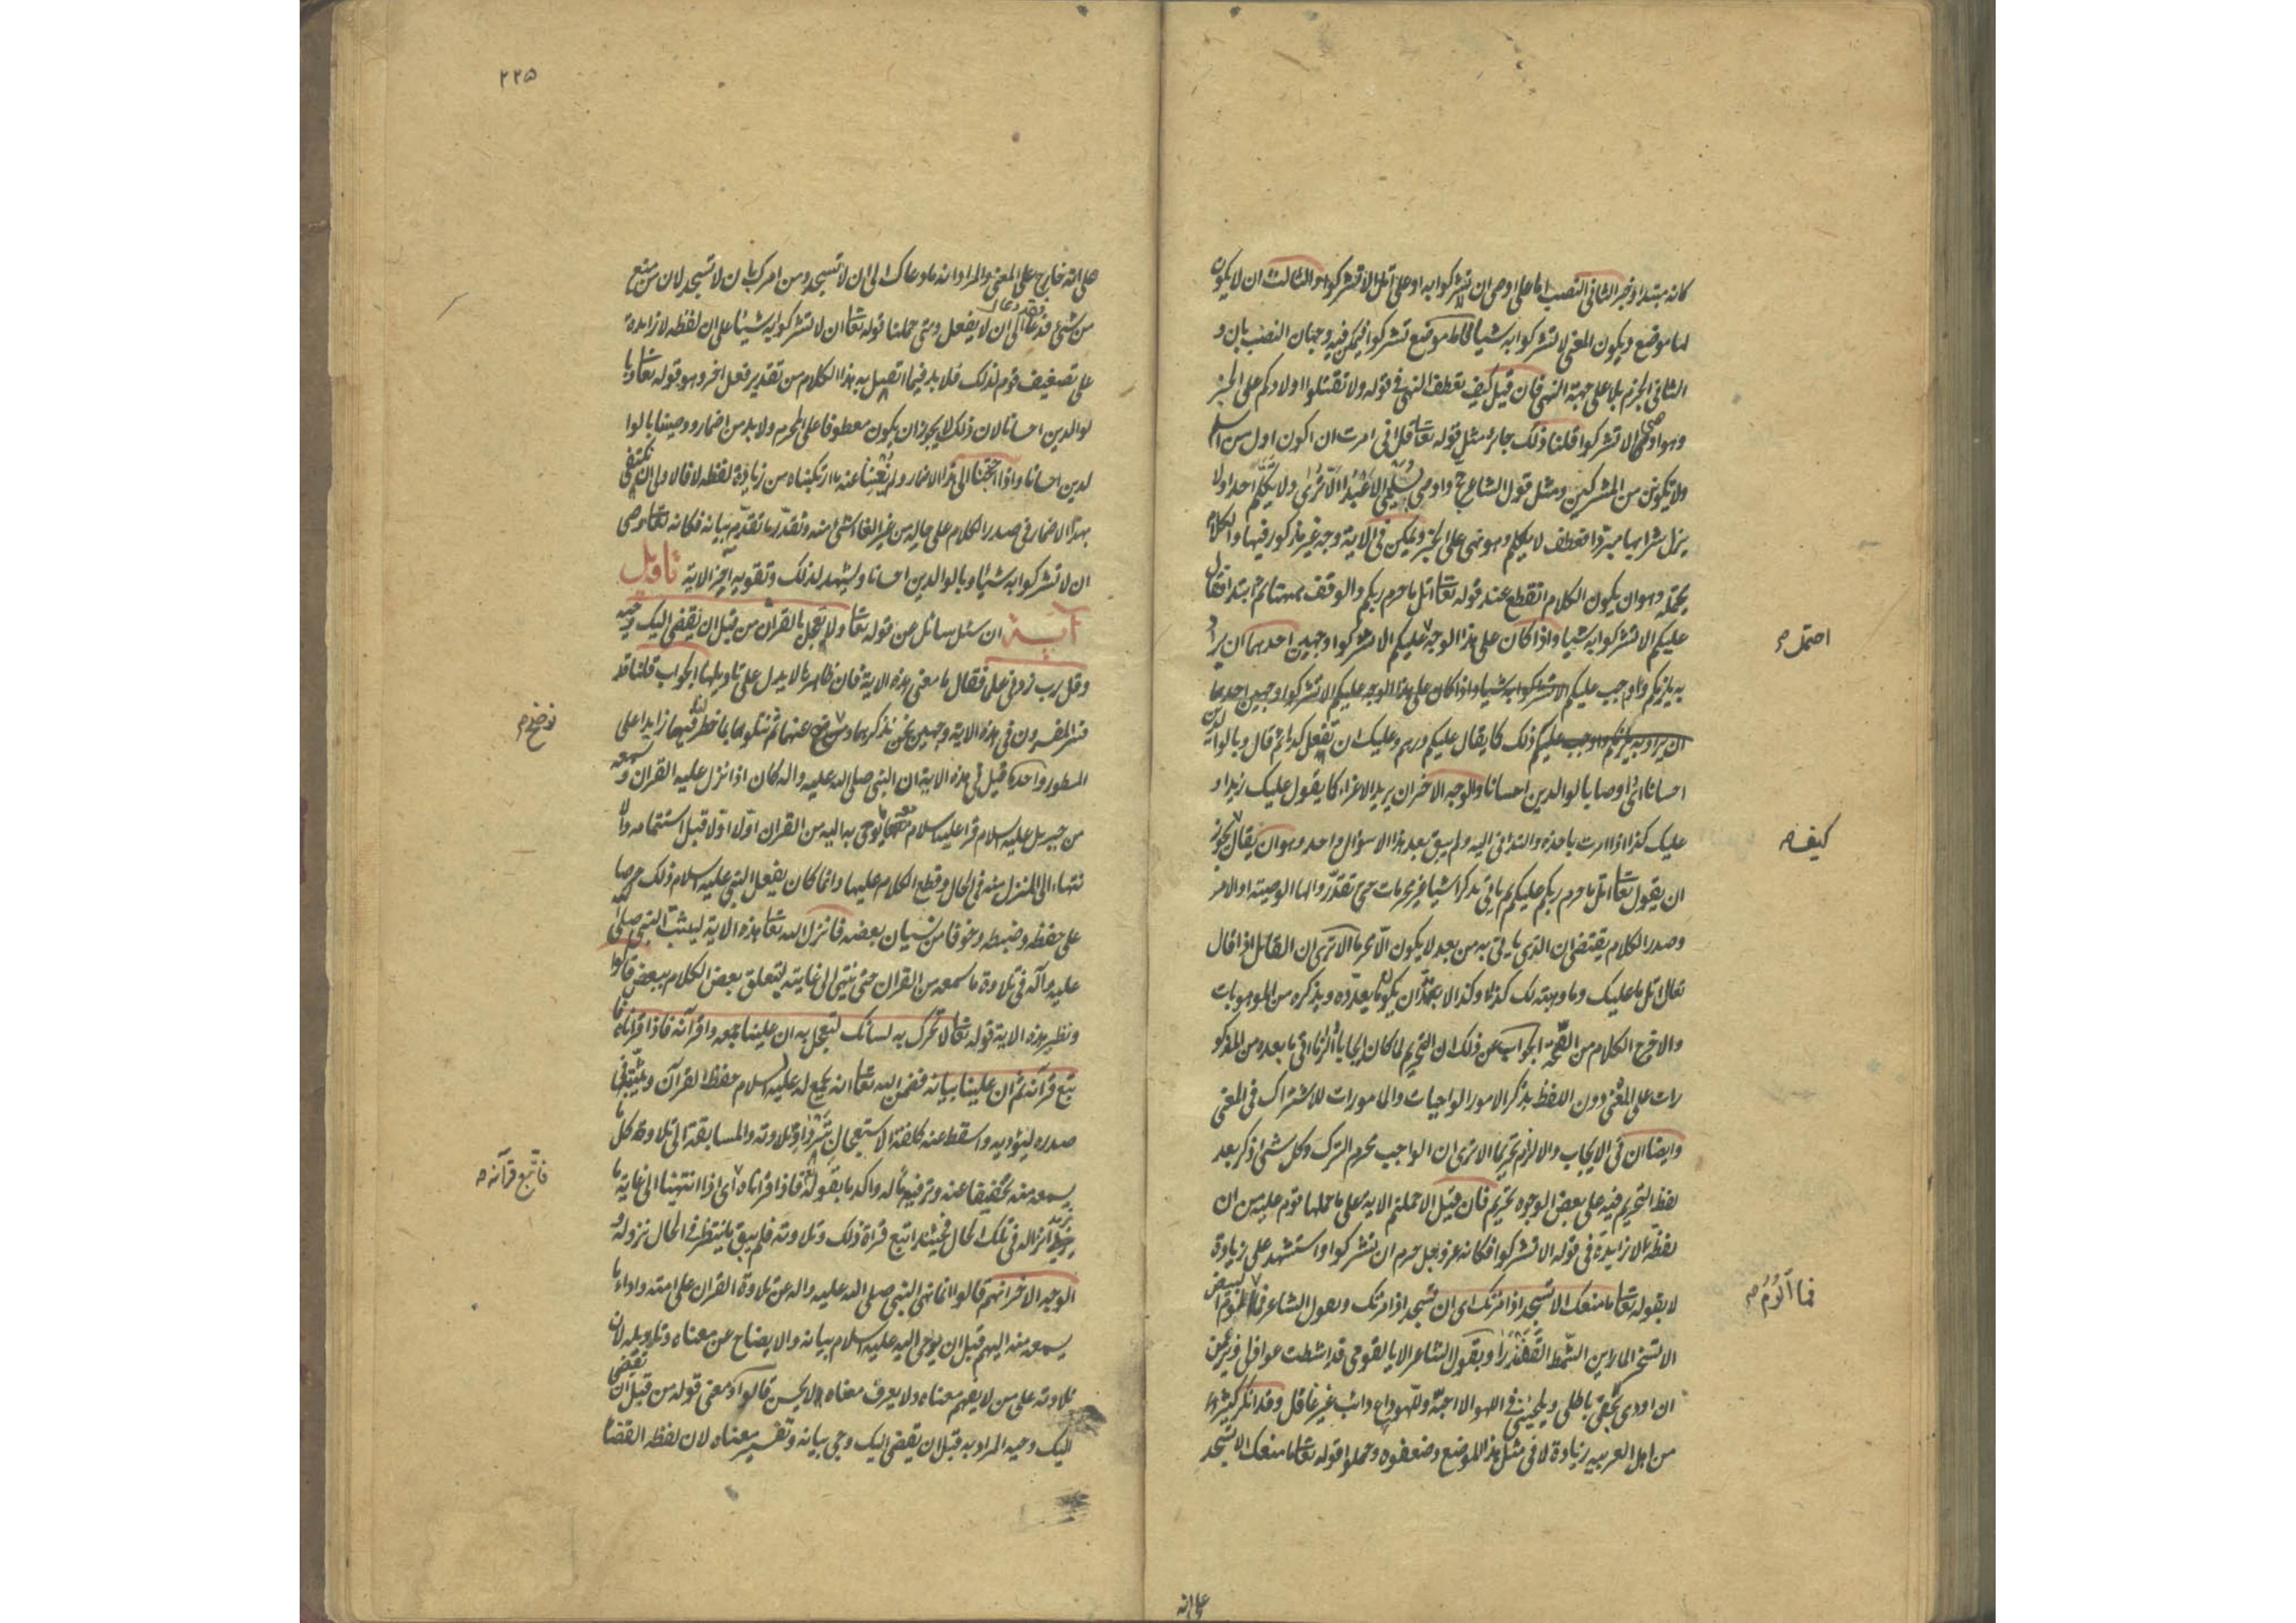 كانه مبتدا وخبر الثاني النصب اما على اوصى ان لا تشركوا به او على اتل الا تشركوا والثالث ان لا يكون
لها موضع ويكون المعنى لا تشركوا به شيا فاما موضع تشركوا فيمكن فيه وجهان النصب بان و
الثاني الجزم بلا على جهة النهي فان قيل كيف تعطف النهي في قوله ولا تقتلوا اولادكم على الخبر
وهو اوصى الا تشركوا قلنا ذلك جائز مثل قوله تعا قل اني امرت ان اكون اول من اسلم
ولا تكونن من المشركين ومثل قول الشاعر حج واوصى بسليمى الاعبدا الا ترى ولا تكلم احدا ولا
يزل شرابها مبردا فعطف لا تكلم وهو نهي على الخبر ويمكن في الاية وجه غير مذكور فيها والكلام
يحتمله وهو ان يكون الكلام انقطع عند قوله تعا اتل ما حرم ربكم والوقف ههنا ثم ابتدا فقال
عليكم الا تشركوا به شيا واذا كان على هذا الوجه عليكم الا تشركوا وجهين احدهما ان يراد
به يلزمكم واوجب عليكم الا تشركوا به شيا واذا كان على هذا الوجه عليكم الا تشركوا وجهين احدهما
ان يراد به يلزمكم واوجب عليكم ذلك كما يقال عليكم درهم وعليك ان تفعل كذا ثم قال وبالوالدين
احسانا اي اوصا بالوالدين احسانا والوجه الاخر ان يريد الاغراء كما يقول عليك زيدا و
عليك كذا اذا امرت باخذه والتداني اليه ولم يبق بعد هذا الا سؤال واحد وهو ان يقال يجوز
ان يقول تعا اتل ما حرم ربكم عليكم ثم ياتي بذكر اشيا غير محرمات حتى تقدر والها الوصية او الامر
وصدر الكلام يقتضي ان الذي ياتي به من بعد لا يكون الا محرما الا ترى ان القائل اذا قال
تعال اتل ما عليك وما وهبته لك كذا وكذا لا بد ان يكون ما يعدده ويذكره من الموهوبات
والا خرج الكلام من الصحة الجواب عن ذلك ان التحريم لما كان ايجابا والزاما اتى ما بعده من المذكو
رات على المعنى دون اللفظ بذكر الامور الواجبات والمامورات للاشتراك في المعنى
وايضا ان في الايجاب والالزام تحريما الا ترى ان الواجب محرم الترك وكل شئ ذكر بعد
لفظ التحريم فيه على بعض الوجوه تحريم فان قيل الا حملتم الاية على ما حملها قوم عليه من ان
لفظة لا زايدة في قوله الا تشركوا فكانه عز وجل حرم ان تشركوا واستشهد على زيادة
لا بقوله تعا ما منعك الا تسجد اذ امرتك اى ان تسجد اذ امرتك وبقول الشاعر فما الوم البيض
الا تسخر الما راين الشمط القفندرا وبقول الشاعر الا يا لقومي قد اشطت عواذلي ويزعمن
ان اودى بحقى باطلى ويلحينني في اللهو الا احبه وللهو داع دائب غير غافل وقد انكر كثير
من اهل العربية زيادة لا في مثل هذا الموضع وضعفوه وحملوا قوله تعا ما منعك الا تسجد
احتمل
كيف
فما آلوم
على انه
٢٢٥
على انه خارج على المعنى والمراد انه ما دعاك الى ان لا تسجد ومن امرك بان لا تسجد لان من منع
من شئ فقد دعا الى ان لا يفعل ومتى حملنا قوله تعا ان لا تشركوا به شيئا على ان لفظه لا زايدة
على تضعيف قوم لذلك فلا بد فيما اتصل به هذا الكلام من تقدير فعل اخر وهو قوله تعا وبا
لوالدين احسانا لان ذلك لا يجوز ان يكون معطوفا على المحرم ولا بد من اضمار ووصينا بالوا
لدين احسانا واذا احتجنا الى هذا الاضمار ولم يغننا عنه ما ارتكبناه من زيادة لفظه لا فالاولى ان نكتفى
بهذا الاضمار في صدر الكلام على حاله من غير الغاء شئ منه ونقدر ما تقدم بيانه فكانه تعا وصى
ان لا تشركوا به شيئا وبالوالدين احسانا ويشهد لذلك وتقويه آخر الاية تاويل
آية ان سئل سائل عن قوله تعا ولا تعجل بالقران من قبل ان يقضى اليك وحيه
وقل رب زدني علما فقال ما معنى هذه الاية فان ظاهرها لا يدل على تاويلها الجواب قلنا قد
ذكر المفسرون في هذه الاية وجهين نحن نذكرهما و عنهما ثم نتلوهما بما خطر لنا فيهما زايدا على
المسطور واحدها قيل في هذه الاية ان النبي صلى الله عليه واله كان اذا نزل عليه القران وسمعه
من جبريل عليه السلام قرا عليه السلام معه ما يوحى به اليه من القران اولا اولا قبل استتمامه والا
نتهاء الى المنزل منه في الحال وقطع الكلام عليها وانما كان يفعل النبي عليه السلام ذلك حرصا
على حفظه وضبطه وخوفا من نسيان بعضه فانزل الله تعا هذه الاية ليثبت النبي صلى الله
عليه وآله في تلاوة ما سمعه من القران حتى ينتهى الى غايته لتعلق بعض الكلام ببعض قالوا
ونظير هذه الاية قوله تعا لا تحرك به لسانك لتعجل به ان علينا جمعه وقرآنه فاذا قراناه فا
تبع قرآنه ثم ان علينا بيانه فضمن الله تعا انه يجمع له عليه السلام حفظ القرآن ويثبته في
صدره ليؤديه واسقط عنه كلفة الاستعجال بترداد تلاوته والمسابقة الى تلاوة كل ما
يسمعه منه تخفيفا عنه وترفيها له واكد ما بقوله تعا فاذا قراناه اى اذا انتهينا الى غاية ما
نريد انزاله في تلك الحال فحينئذ اتبع قراة ذلك وتلاوته فلم يبق ما ينتظر في الحال نزوله و
الوجه الاخر انهم قالوا انما نهى النبي صلى الله عليه واله عن تلاوة القران على امته واداء ما
يسمعه منه اليهم قبل ان يوحى اليه عليه السلام بيانه والايضاح عن معناه وتاويله لان
تلاوته على من لا يفهم معناه ولا يعرف معناه لا يحسن قالوا ومعنى قوله من قبل ان يقضى
اليك وحيه المراد به قبل ان يقضى اليك وحى بيانه وتفسير معناه لان لفظه القضا
نوضح
فاتبع قرآنه